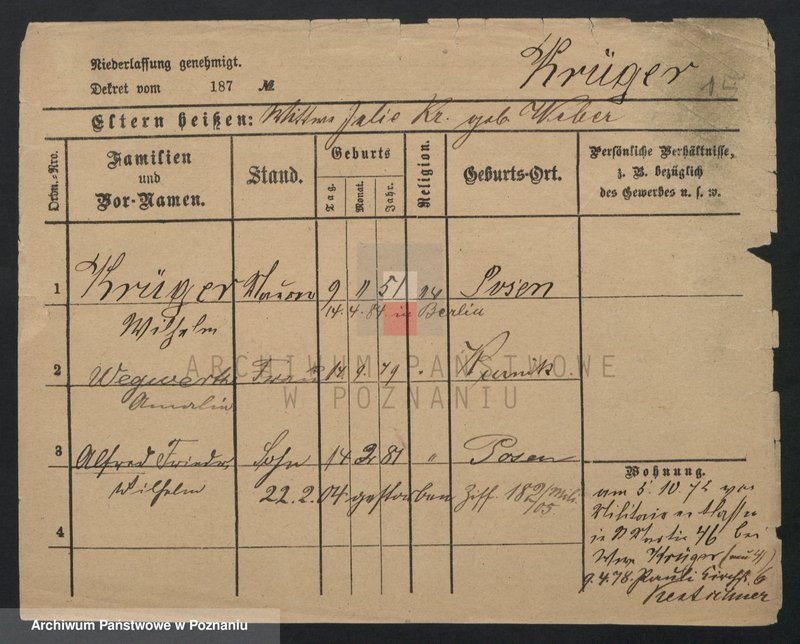 Niederlassung genehmigt.
Dekret vom 187 №
Krüger
15
Eltern heißen: Wittwe Julie Kr. geb. Weber
Ordn.-Nro.
Familien und Vor-Namen.
Stand.
Geburts
Tag. Monat. Jahr.
Religion.
Geburts-Ort.
Persönliche Verhältnisse, z. B. bezüglich des Gewerbes u. s. w.
1 Krüger Maurer 9 11 51 Posen
14.4.84 in Berlin
Wilhelm
2 Wegwerth Frau 14 9 49 " Kurnik
Amalia
3 Alfred Friedr. Sohn 14 2 81 " Posen
Wilhelm 22.2.04 gestorben Ziff. 18
4
Wohnung.
am 5.10.72 vom
Militair entlassen
46 bei
Wwe Krüger
9.4.78. Pauli Kirchst. 6
ARCHIWUM PAŃSTWOWE
W POZNANIU
Archiwum Państwowe w Poznaniu